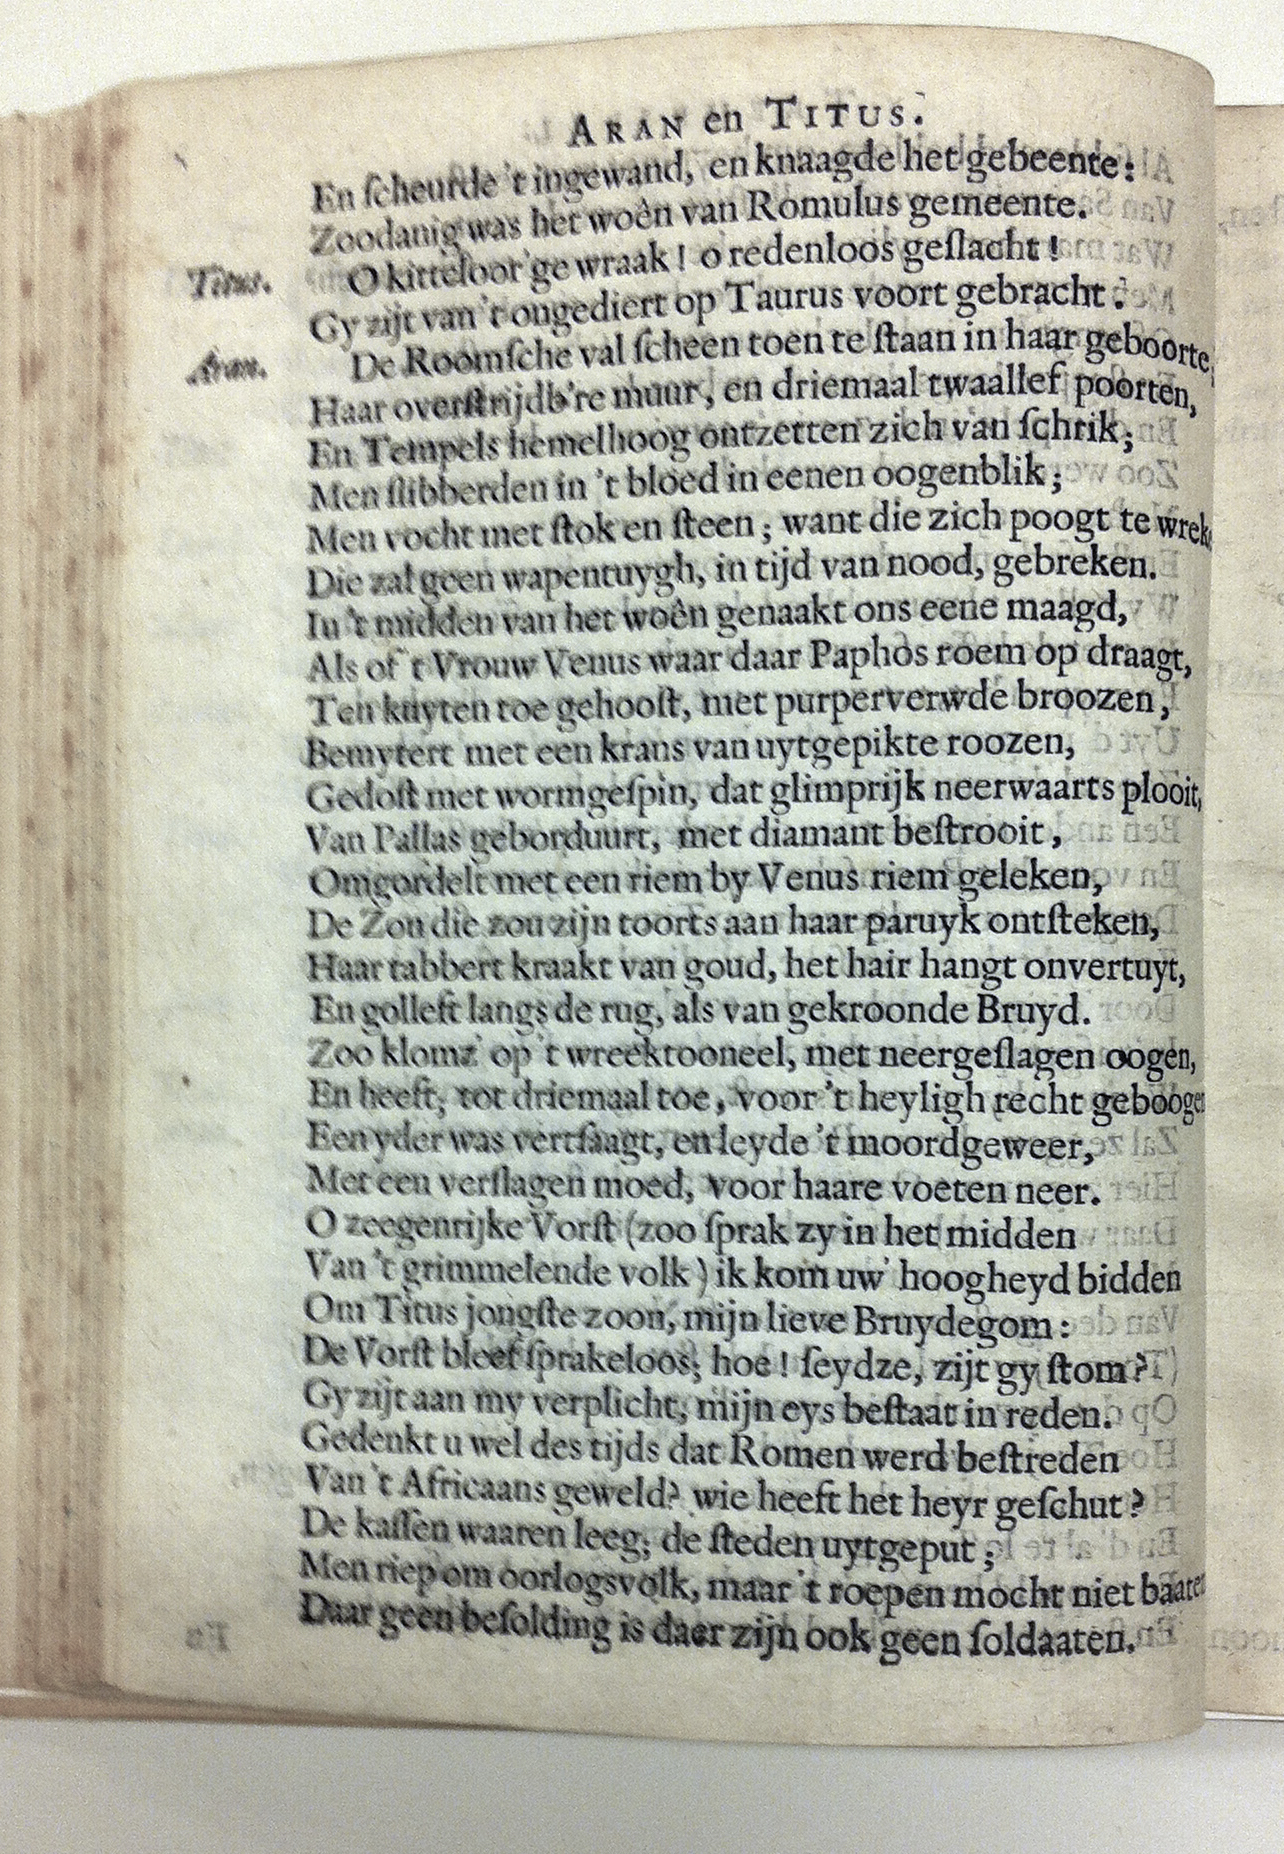 ARAN en TITUS.
En ſcheurde 't ingewand, en knaagde het gebeente:
Zoodanig was het woên van Romulus gemeente.
Titus. O kitteloor'ge wraak! o redenloos geſlacht!
Gy zijt van 't ongediert op Taurus voort gebracht.
Aran. De Roomſche val ſcheen toen te ſtaan in haar geboorte,
Haar overſtrijdb're muur, en driemaal twaallef poorten,
En Tempels hemelhoog ontzetten zich van ſchrik;
Men ſlibberden in 't bloed in eenen oogenblik;
Men vocht met ſtok en ſteen; want die zich poogt te
Die zal geen wapentuygh, in tijd van nood, gebreken.
In 't midden van het woên genaakt ons eene maagd,
Als of 't Vrouw Venus waar daar Paphos roem op draagt,
Ten kuyten toe gehooſt, met purperverwde broozen,
Bemytert met een krans van uytgepikte roozen,
Gedoſt met wormgeſpin, dat glimprijk neerwaarts plooit,
Van Pallas geborduurt, met diamant beſtrooit,
Omgordelt met een riem by Venus riem geleken,
De Zon die zou zijn toorts aan haar paruyk ontſteken,
Haar tabbert kraakt van goud, het hair hangt onvertuyt,
En golleft langs de rug, als van gekroonde Bruyd.
Zoo klomz' op 't wreektooneel, met neergeſlagen oogen,
En heeft, tot driemaal toe, voor 't heyligh recht
Een yder was vertſaagt, en leyde 't moordgeweer,
Met een verſlagen moed, voor haare voeten neer.
O zeegenrijke Vorſt (zoo ſprak zy in het midden
Van 't grimmelende volk) ik kom uw' hoogheyd bidden
Om Titus jongſte zoon, mijn lieve Bruydegom:
De Vorſt bleef ſprakeloos; hoe! ſeydze, zijt gy ſtom?
Gy zijt aan my verplicht, mijn eys beſtaat in reden.
Gedenkt u wel des tijds dat Romen werd beſtreden
Van 't Africaans geweld? wie heeft het heyr geſchut?
De kaſſen waaren leeg; de ſteden uytgeput;
Men riep om oorlogsvolk, maar 't roepen mocht niet
Daar geen beſolding is daer zijn ook geen ſoldaaten.